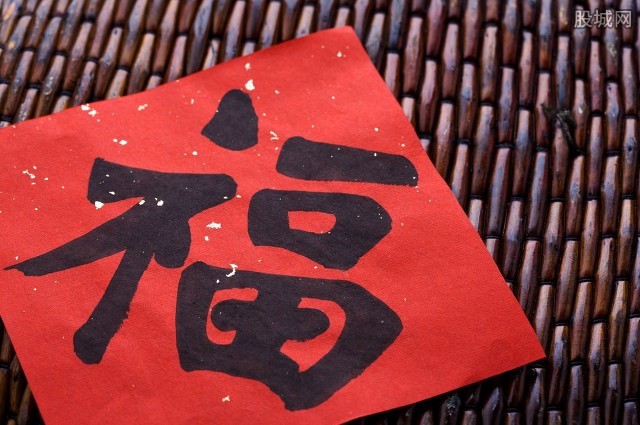 股城网
福